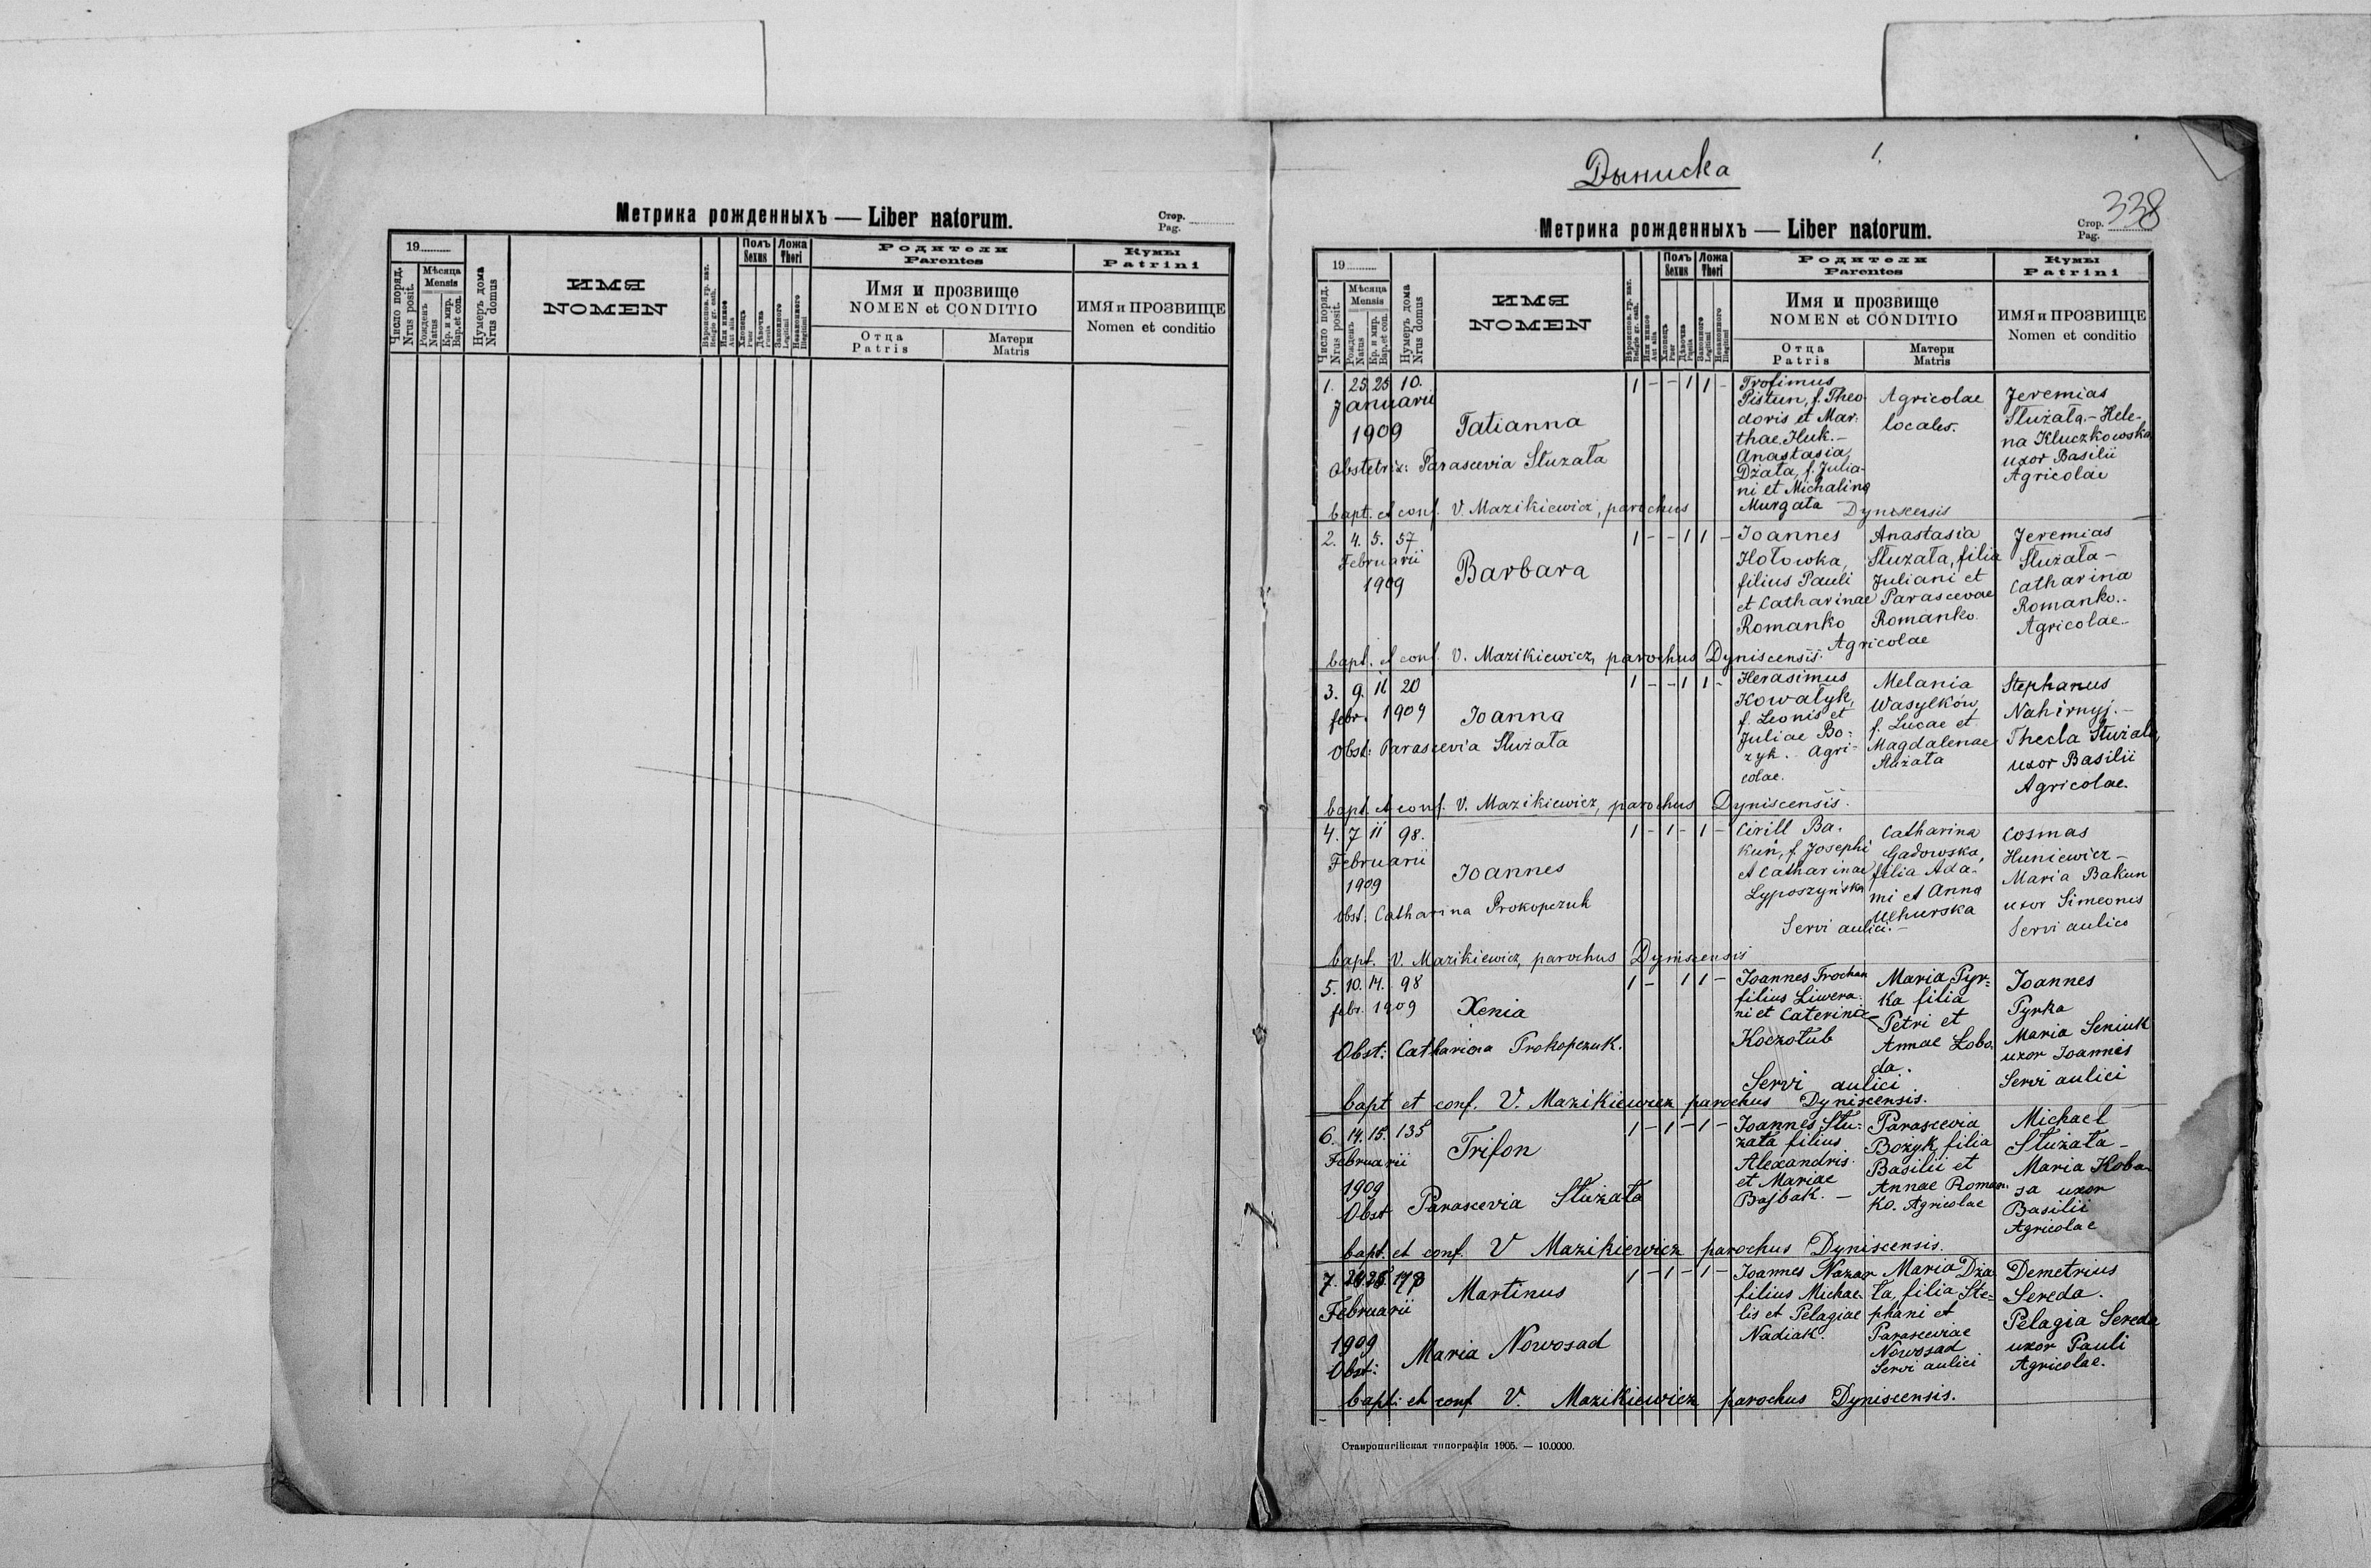 Метрика рожденныхъ — Liber natorum.
Стор.
Pag.
19
Число поряд.
Nrus posit.
Мѣсяца
Mensis
Рожденъ
Natus
Кр. и мир.
Bap. et con.
Нумеръ дома
Nrus domus
ИМЯ
NOMEN
Вѣроисповѣд. гр. кат.
Religio gr. cath.
Или инное
Aut alia
Полъ
Sexus
Хлопецъ
Puer
Дѣвочка
Puella
Ложа
Thori
Законного
Legitimi
Незаконного
Illegitimi
Родители
Parentes
Имя и прозвище
NOMEN et CONDITIO
Отца
Patris
Матери
Matris
Кумы
Patrini
ИМЯ и ПРОЗВИЩЕ
Nomen et conditio
Дыниска
1.
338
Метрика рожденныхъ — Liber natorum.
Стор.
Pag.
19
Число поряд.
Nrus posit.
Мѣсяца
Mensis
Рожденъ
Natus
Кр. и мир.
Bap. et con.
Нумеръ дома
Nrus domus
ИМЯ
NOMEN
Или инное
Aut alia
Полъ
Sexus
Хлопецъ
Puer
Дѣвочка
Puella
Ложа
Thori
Законного
Legitimi
Незаконного
Illegitimi
Родители
Parentes
Имя и прозвище
NOMEN et CONDITIO
Отца
Patris
Матери
Matris
Кумы
Patrini
ИМЯ и ПРОЗВИЩЕ
Nomen et conditio
1. 25 25 10.
Januarii
1909
Tatianna
Obstetrix: Parascevia Słuzała
1 - - 1 1 -
Trofimus
Pistun, f. Theo-
doris et Mar-
thae Huk. -
Anastasia
Dżała, f. Julia-
ni et Michalina
Murgała
Agricolae
locales.
Jeremias
Służała - Hele-
na Kluczkowska
uxor Basilii
Agricolae
bapt. et conf. V. Mazikiewicz, parochus Dyniscensis
2. 4. 5. 57
Februarii
1909
Barbara
1 - - 1 1 -
Joannes
Hołowka,
filius Pauli
et Catharinae
Romanko
Anastasia
Słuzała, filia
Juliani et
Parascevae
Romanko.
Agricolae
Jeremias
Służała -
Catharina
Romanko. -
Agricolae -
bapt. et conf. V. Mazikiewicz, parochus Dyniscensis.
3. 9. 11 20
febr. 1909
Joanna
Obst: Parascevia Służała
1 - - 1 1 -
Herasimus
Kowałyk,
f. Leonis et
Juliae Bo-
zyk. Agri-
colae.
Melania
Wasylków,
f. Lucae et
Magdalenae
Służała
Stephanus
Nahirnyj. -
Thecla Służała,
uxor Basilii
Agricolae.
bapt. et conf. V. Mazikiewicz, parochus Dyniscensis.
4. 7 11 98.
Februarii
1909
Joannes
Obst. Catharina Prokopczuk
1 - 1 - 1 -
Cirill Ba-
kun, f. Josephi
et Catharinae
Lyposzyńska
Catharina
Gadowska,
filia Ada-
mi et Anna
Uchurska
Servi aulici. -
Cosmas
Huniewicz -
Maria Bakun
uxor Simeonis
Servi aulics
bapt. V. Mazikiewicz, parochus Dyniscensis
5. 10. 14. 98
febr. 1909
Xenia
Obst: Catharina Prokopczuk.
1 - 1 1 -
Joannes Trochan
filius Liwera-
ni et Caterinae
Koczołub
Maria Pyr-
ka filia
Petri et
Annae Łobo-
da.
Servi aulici
Joannes
Pyrka
Maria Seniuk
uxor Joannis
Servi aulici
bapt et conf. V. Mazikiewicz parochus Dyniscensis.
6. 14. 15. 135
Februarii
1909
Trifon
Obst Parascevia Służała
1 - 1 - 1 -
Joannes Słu-
zała filius
Alexandris
et Mariae
Bajbak. -
Parascevia
Bożyk, filia
Basilii et
Annae Roman-
ko. Agricolae
Michael
Służała -
Maria Koba-
sa uxor
Basilii
Agricolae
bapt. et conf. V Mazikiewicz parochus Dyniscensis.
7.
Februarii
1909
Martinus
Obst: Maria Nowosad
1 - 1 - 1 -
Joannes Nazar
filius Michae-
lis et Pelagiae
Nadiak.
Maria Dża-
ła, filia Ste-
phani et
Parasceviae
Nowosad
Servi aulici
Demetrius
Sereda.
Pelagia Sereda
uxor Pauli
Agricolae.
bapt: et conf V. Mazikiewicz parochus Dyniscensis.
Ставропигійская типографія 1905. — 10.0000.